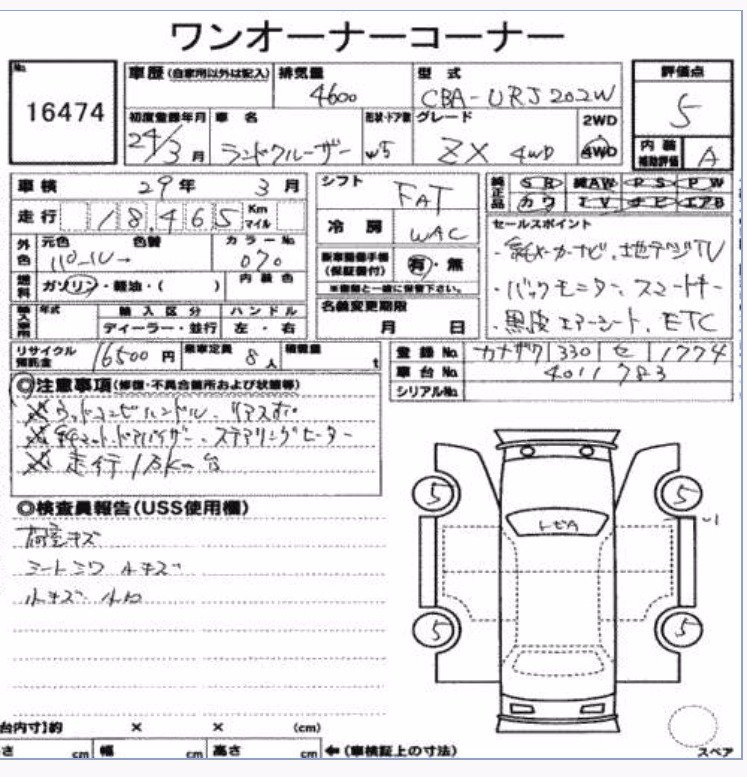 ワンオーナーコーナー
No. 16474
車歴(自家用以外は記入) 排気量 4600 型式 CBA-URJ202W 評価点 5
初度登録年月 24/3月 車名 ランドクルーザー 形状・ドア数 W5 グレード ZX 4WD 2WD 4WD 内装補助評価 A
車検 29年 3月 シフト FAT 純正品 SR 純AW PS PW
カワ TV ナビ エアB
走行 18,465 Km マイル 冷房 WAC セールスポイント
外色 元色 パール 色替 カラーNo. 070 ・純メーカーナビ、地デジTV
燃料 ガソリン・軽油・( ) 内装色 新車整備手帳(保証書付) 有・無 ・バックモニター、スマートキー
※書類と一緒に保管下さい。
輸入車用 年式 輸入区分 ディーラー・並行 ハンドル 左・右 名義変更期限 月 日 ・黒皮エアーシート、ETC
リサイクル預託金 16500円 乗車定員 8人 積載量 t 登録No. カナザワ 330 セ 1774
車台No. 4011783
シリアルNo.
◎注意事項(修復・不具合箇所および状態等)
ウッドコンビハンドル、リアスポ
純マット、ドアバイザー、ステアリングヒーター
走行1万8千Km台
◎検査員報告(USS使用欄)
荷室キズ
シートシワ 小キズ
小キズ 小凹
トビA
5 5
5 5
台内寸】約 × × (cm)
さ cm 幅 cm 高さ cm ←(車検証上の寸法) スペア